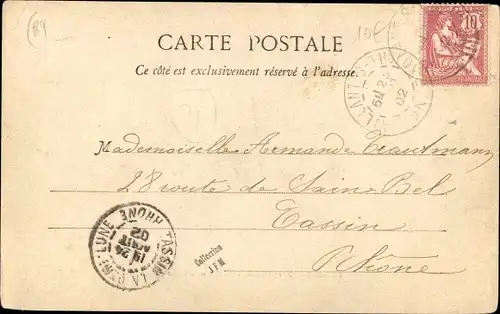 (89
10F
10
CARTE POSTALE
Ce côté est exclusivement réservé à l'adresse.
5H 23
02
Mademoiselle Armande Trautmann
28 route de Sain-Bel
Tassin
Rhône
TASSIN LA DEMI-LUNE RHONE
24
AOUT
02
Collection
J F M